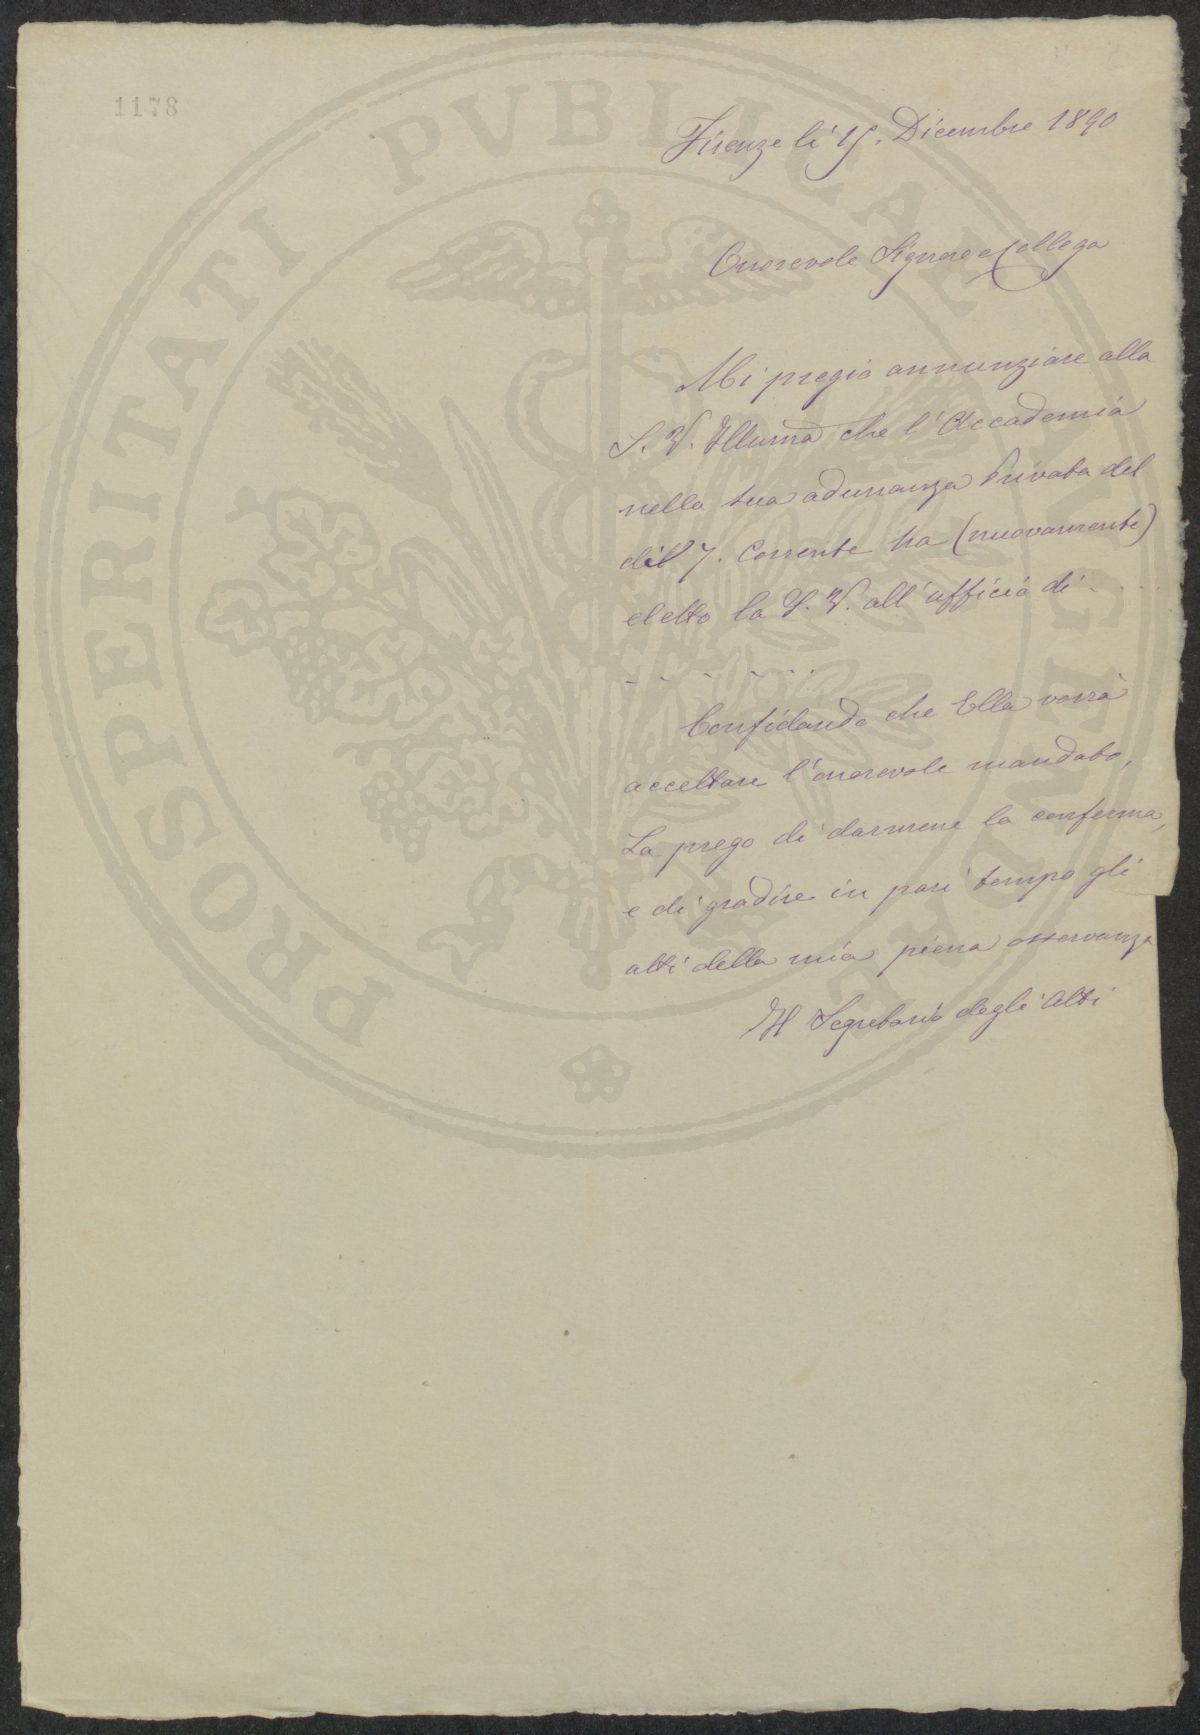 1178
Firenze li 15. Dicembre 1890
Onorevole Signore e Collega
Mi pregio annunziare alla
S. V. Illuma che l'Accademia
nella sua adunanza Privata del
dil 7. Corrente ha (nuovamente)
eletto la S. V. all'ufficio di . . . .
. . . . . . .
Confidando che Ella vorrà
accettare l'onorevole mandato,
La prego di darmene la conferma,
e di gradire in pari tempo gli
atti della mia piena osservanza
Il Segretario degli Atti
PROSPERITATI PVBLICAE AVGENDAE